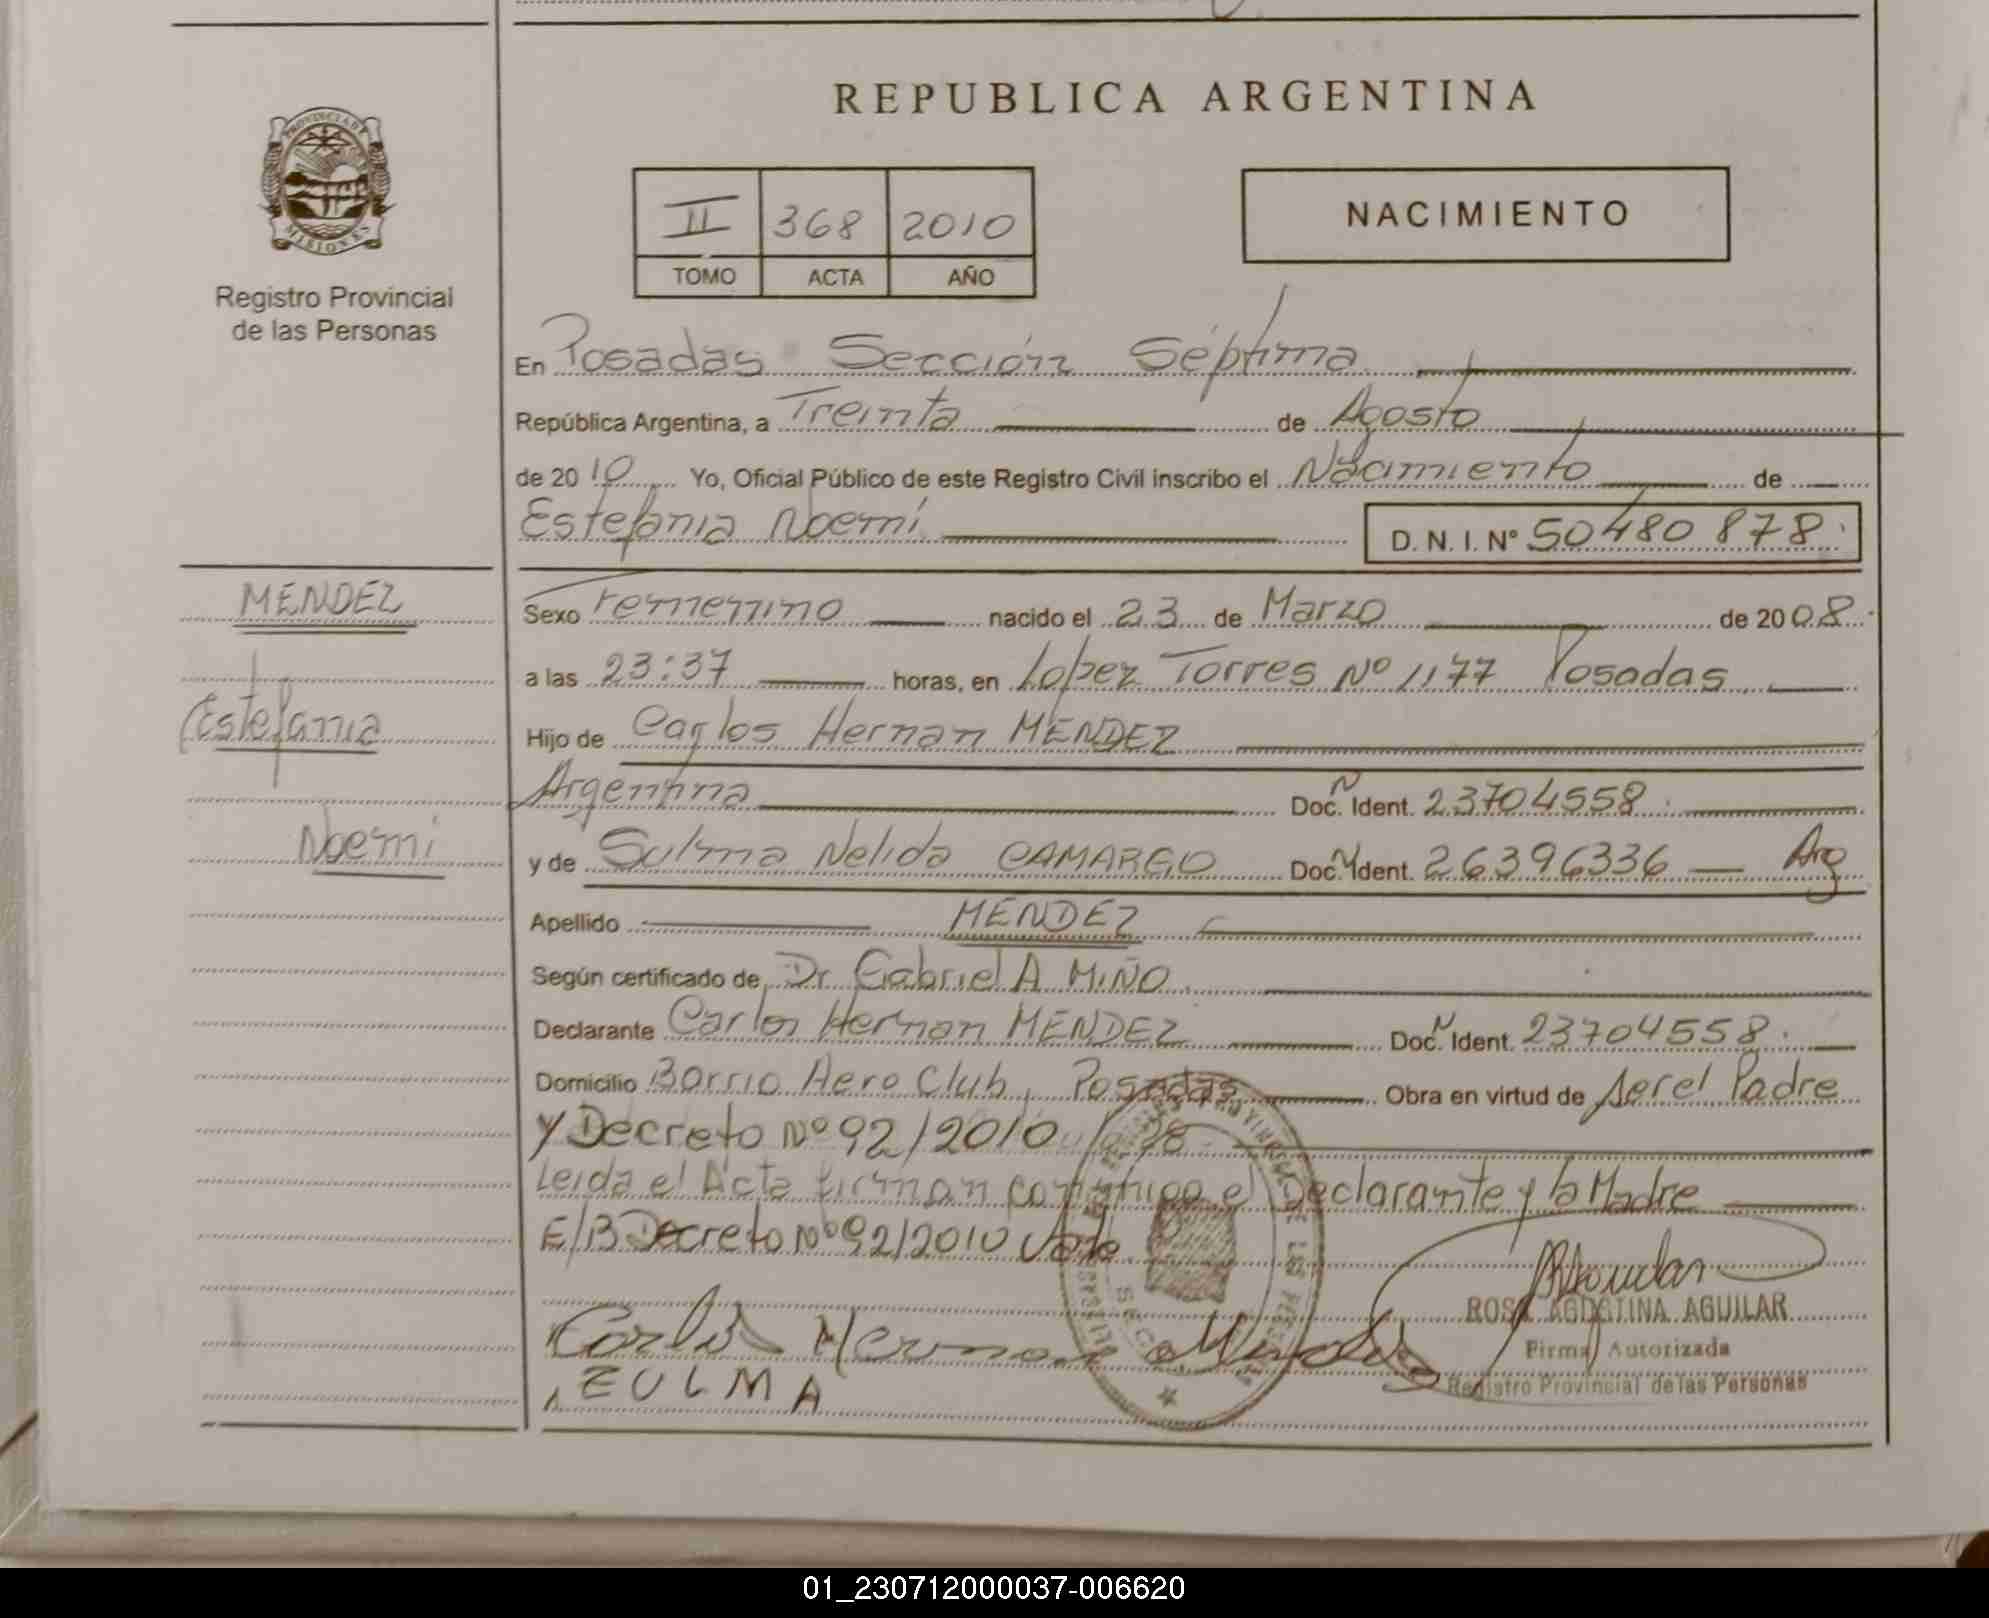 REPUBLICA ARGENTINA
PROVINCIA DE MISIONES
Registro Provincial
de las Personas
II 368 2010
TOMO ACTA AÑO
NACIMIENTO
En Posadas Sección Séptima
República Argentina, a Treinta de Agosto
de 2010 Yo, Oficial Público de este Registro Civil inscribo el Nacimiento de
Estefania Noemí D.N.I. Nº 50480878
MENDEZ
Estefania
Noemi
Sexo Femenino nacido el 23 de Marzo de 2008
a las 23:37 horas, en Lopez Torres Nº 1177 Posadas
Hijo de Carlos Hernan MENDEZ
Argentina Doc. Ident. 23704558
y de Sulma Nelida CAMARGO Doc. Ident. 26396336 Arg
Apellido MENDEZ
Según certificado de Dr. Gabriel A MIÑO
Declarante Carlos Hernan MENDEZ Doc. Ident. 23704558
Domicilio Barrio Aero Club, Posadas Obra en virtud de Ser el Padre
y Decreto Nº 92/2010
Leida el Acta firman conmigo el Declarante y la Madre
E/B Decreto Nº 92/2010 Vale
Carlos Hernan Mendez
ZULMA
ROSA AGUSTINA AGUILAR
Firma Autorizada
Registro Provincial de las Personas
01_230712000037-006620